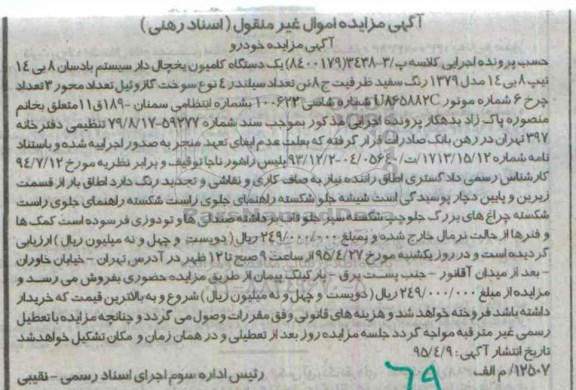 آگهی مزایده اموال غیر منقول (اسناد رهنی)
آگهی مزایده خودرو
حسب پرونده اجرایی کلاسه پ/۳-۳۴۳۸(۸۴۰۰۱۷۹) یک دستگاه کامیون یخچال دار سیستم بادسان ۸ بی ۱۴
تیپ ۸ بی ۱۴ مدل ۱۳۷۹ رنگ سفید ظرفیت ج ۸ تن تعداد سیلندر ۴ نوع سوخت گازوئیل تعداد محور ۳ تعداد
چرخ ۶ شماره موتور U865882C شماره شاسی ۱۰۰۶۲۳ بشماره انتظامی سمنان -۱۸۹ق۱۱ متعلق بخانم
منصوره پاک زاد بدهکار پرونده اجرایی مذکور بموجب سند شماره ۵۹۲۷۷-۷۹/۸/۱۷ تنظیمی دفترخانه
۳۹۷ تهران در رهن بانک صادرات قرار گرفته که بعلت عدم ایفای تعهد منجر به صدور اجرائیه شده و باستناد
نامه شماره ۱۷۱۳/۱۵/۱۲/ت/۰۵۶۴۰-۰۴-۹۳/۱۲/۲ پلیس راهور ناجا توقیف و برابر نظریه مورخ ۹۴/۷/۱۲
کارشناس رسمی دادگستری اطاق راننده نیاز به صاف کاری و نقاشی و تجدید رنگ دارد اطاق بار از قسمت
زیرین و پایین دچار پوسیدگی است شیشه جلو شکسته راهنمای جلوی راست شکسته راهنمای جلوی راست
شکسته چراغ های بزرگ جلو چپ شکسته سپر جلو قاب برداشته صندلی ها و تودوزی فرسوده است کمک ها
و فنرها از حالت نرمال خارج شده و بمبلغ ۲۴۹/۰۰۰/۰۰۰ ریال (دویست و چهل و نه میلیون ریال) ارزیابی
گردیده است و در روز یکشنبه مورخ ۹۵/۴/۲۷ از ساعت ۹ صبح تا ۱۲ ظهر در آدرس تهران - خیابان خاوران
- بعد از میدان آقانور - جنب پست برق - پارکینگ پیمان از طریق مزایده حضوری بفروش می رسد و
مزایده از مبلغ ۲۴۹/۰۰۰/۰۰۰ ریال (دویست و چهل و نه میلیون ریال) شروع و به بالاترین قیمت که خریدار
داشته باشد فروخته خواهد شد و هزینه های قانونی وفق مقررات وصول می گردد و چنانچه مزایده با تعطیل
رسمی غیر مترقبه مواجه گردد جلسه مزایده روز بعد از تعطیلی و در همان زمان و مکان تشکیل خواهد شد
تاریخ انتشار آگهی: ۹۵/۴/۹
۱۲۵۰۷/ م الف
رئیس اداره سوم اجرای اسناد رسمی - نقیبی
۶۹